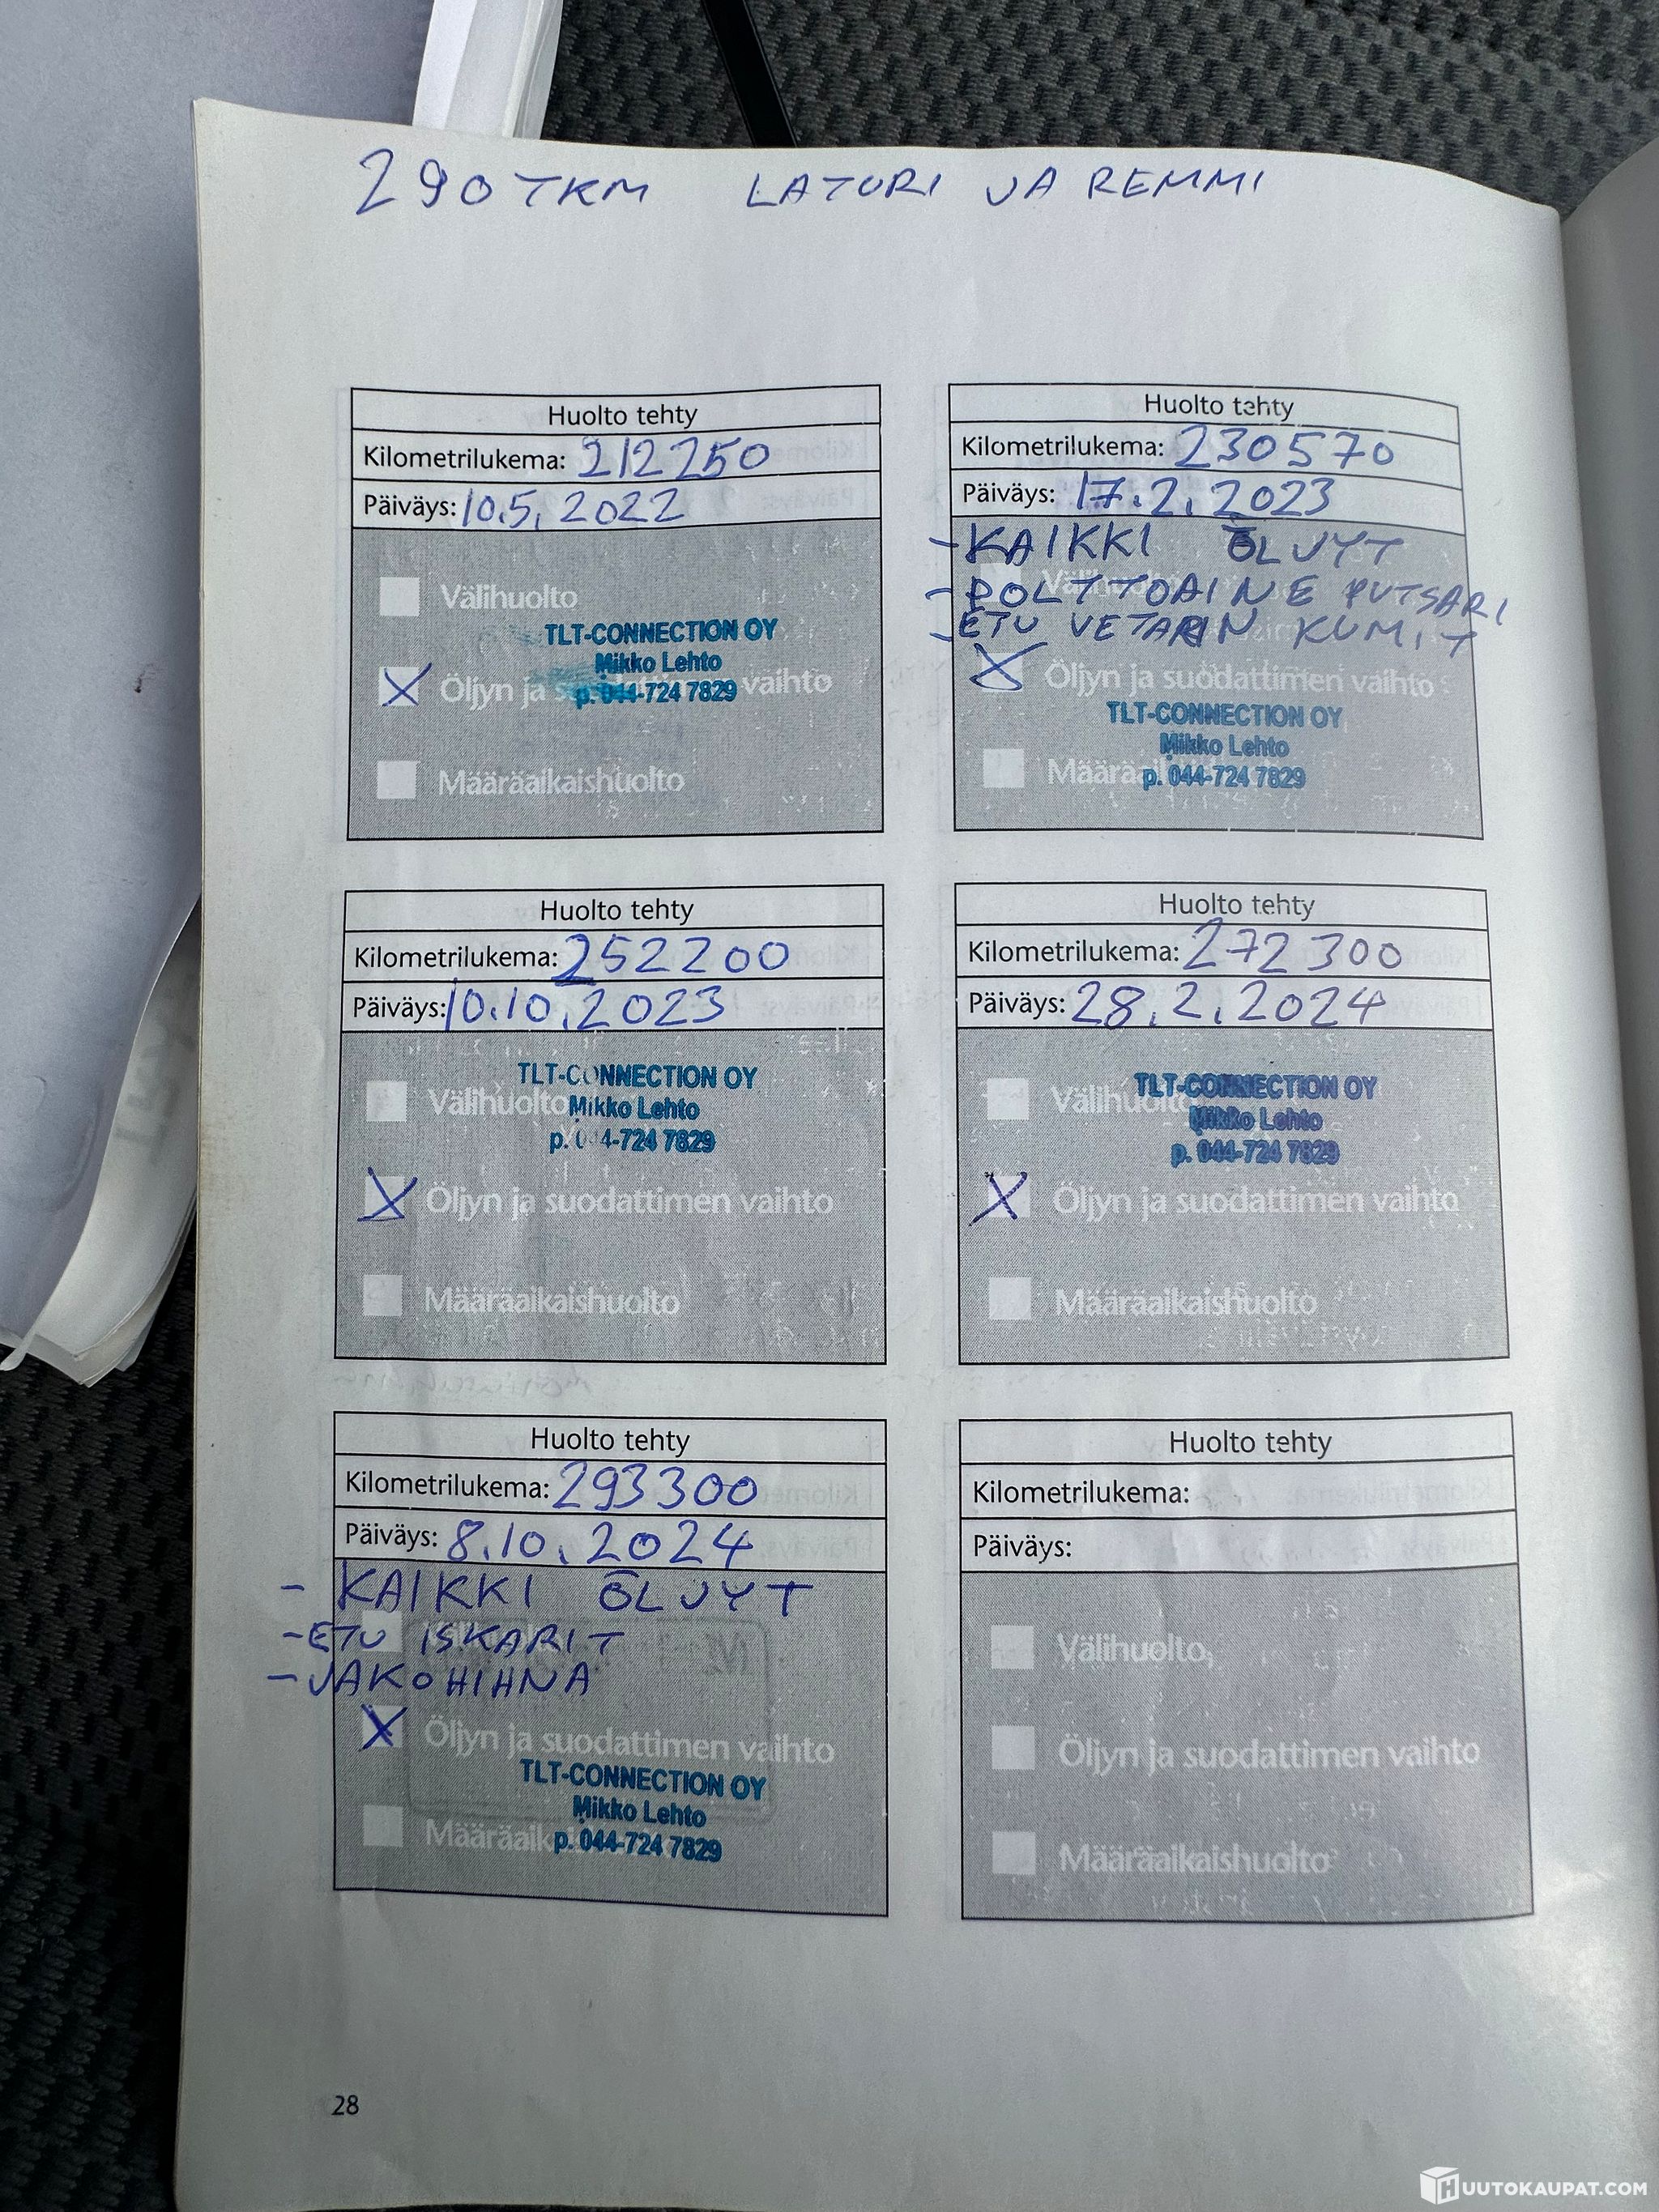 290 TKM LATURI JA REMMI
Huolto tehty
Kilometrilukema: 212250
Päiväys: 10.5.2022
Välihuolto
TLT-CONNECTION OY
Mikko Lehto
p. 044-724 7829
Öljyn ja suodattimen vaihto
Määräaikaishuolto
Huolto tehty
Kilometrilukema: 230570
Päiväys: 17.2.2023
- KAIKKI ÖLJYT
- POLTTOAINE PUTSARI
- ETU VETARIN KUMIT
Öljyn ja suodattimen vaihto
TLT-CONNECTION OY
Mikko Lehto
p. 044-724 7829
Huolto tehty
Kilometrilukema: 252200
Päiväys: 10.10.2023
TLT-CONNECTION OY
Välihuolto Mikko Lehto
p. 044-724 7829
Öljyn ja suodattimen vaihto
Määräaikaishuolto
Huolto tehty
Kilometrilukema: 272300
Päiväys: 28.2.2024
TLT-CONNECTION OY
Välihuolto Mikko Lehto
p. 044-724 7829
Öljyn ja suodattimen vaihto
Määräaikaishuolto
Huolto tehty
Kilometrilukema: 293300
Päiväys: 8.10.2024
- KAIKKI ÖLJYT
- ETU ISKARIT
- JAKOHIHNA
Öljyn ja suodattimen vaihto
TLT-CONNECTION OY
Mikko Lehto
p. 044-724 7829
Huolto tehty
Kilometrilukema:
Päiväys:
Välihuolto
Öljyn ja suodattimen vaihto
Määräaikaishuolto
28
HUUTOKAUPAT.COM